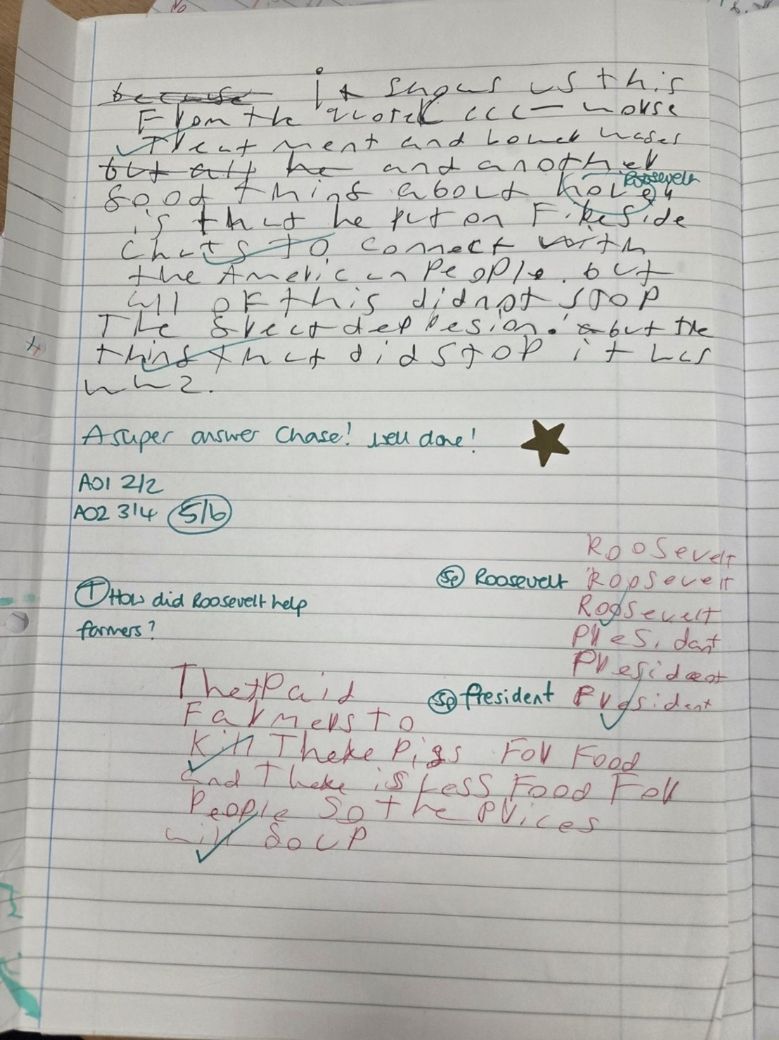 because It shows us this
From the quote CCC - worse
Treatment and lower wages
but all he and another
good thing about hover
Roosevelt
is that he put on Fireside
Chats To connect with
the American People. but
all of this did not STOP
The Great deppesion. but the
thing that did STOP it was
ww2.
A super answer Chase! well done!
AO1 2/2
AO2 3/4 5/6
Roosevelt
Sp Roosevelt Roosevelt
Roosevelt
T How did Roosevelt help
farmers?
PResidant
PResideant
Sp President President
They Paid
Farmers To
Kill There Pigs FoR Food
and There is Less Food FoR
People So the PRices
will Go UP